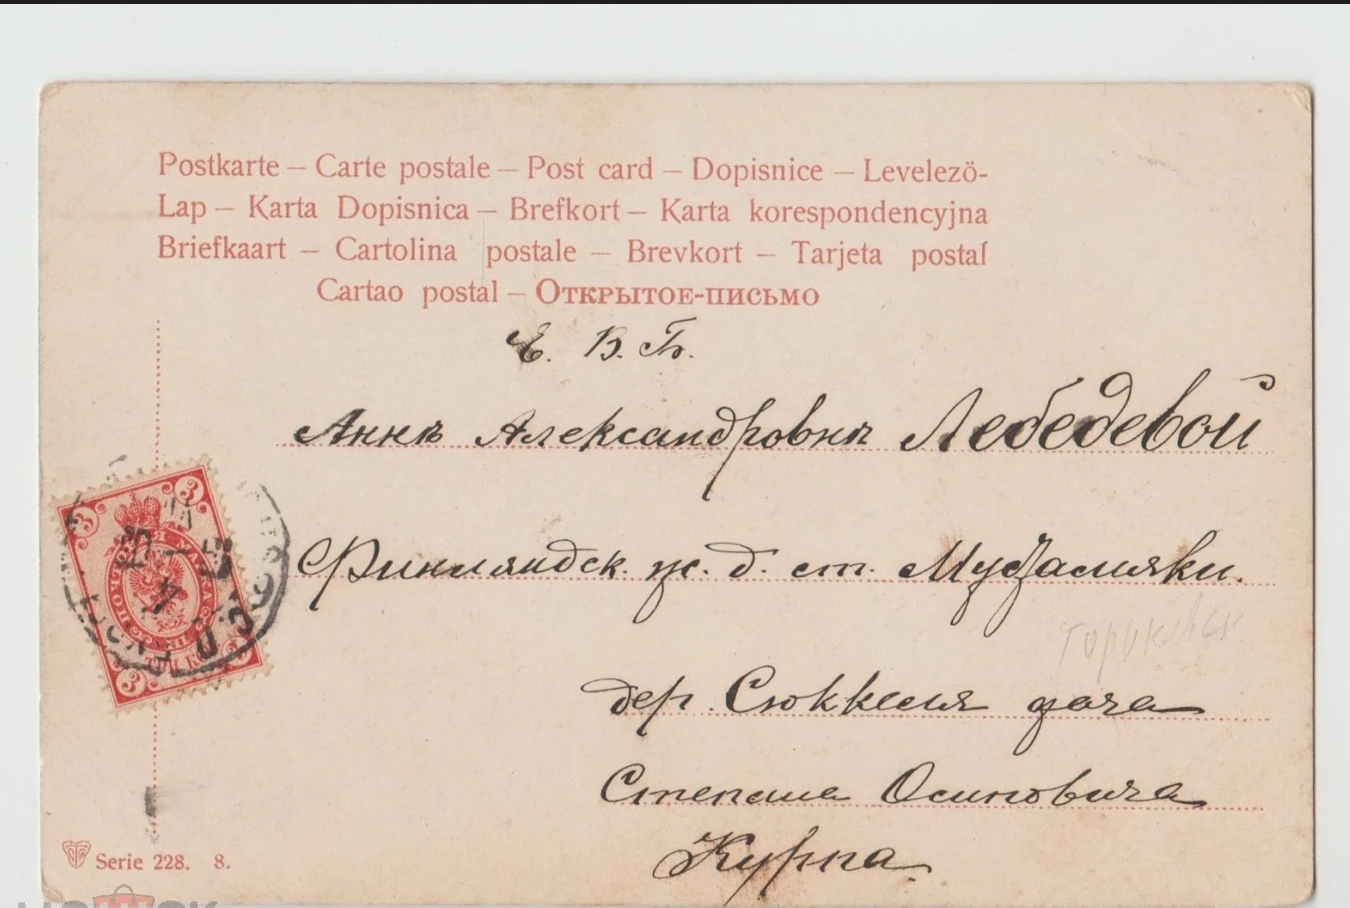 Postkarte – Carte postale – Post card – Dopisnice – Levelezö-
Lap – Karta Dopisnica – Brefkort – Karta korespondencyjna
Briefkaart – Cartolina postale – Brevkort – Tarjeta postal
Cartao postal – Открытое-письмо
Е. В. Б.
Аннѣ Александровнѣ Лебедевой
Финляндск. ж. д. ст. Мустамяки.
дер. Сюккеля дача
Степана Осиповича
Курпа
3 3
ПОЧТОВАЯ МАРКА
ТРИ КОП
3 3
Serie 228. 8.